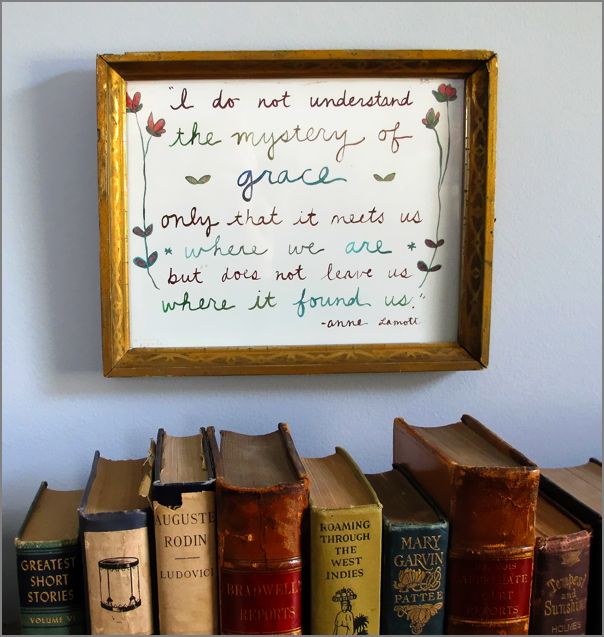 "I do not understand
the mystery of
grace
only that it meets us
* where we are *
but does not leave us
where it found us."
-anne Lamott
GREATEST
SHORT
STORIES
VOLUME VI
AUGUSTE
RODIN
LUDOVICI
BRADWELL'S
REPORTS
ROAMING
THROUGH
THE
WEST
INDIES
MARY
GARVIN
PATTEE
APPELLATE
COURT
REPORTS
Tempest
and
Sunshine
HOLMES